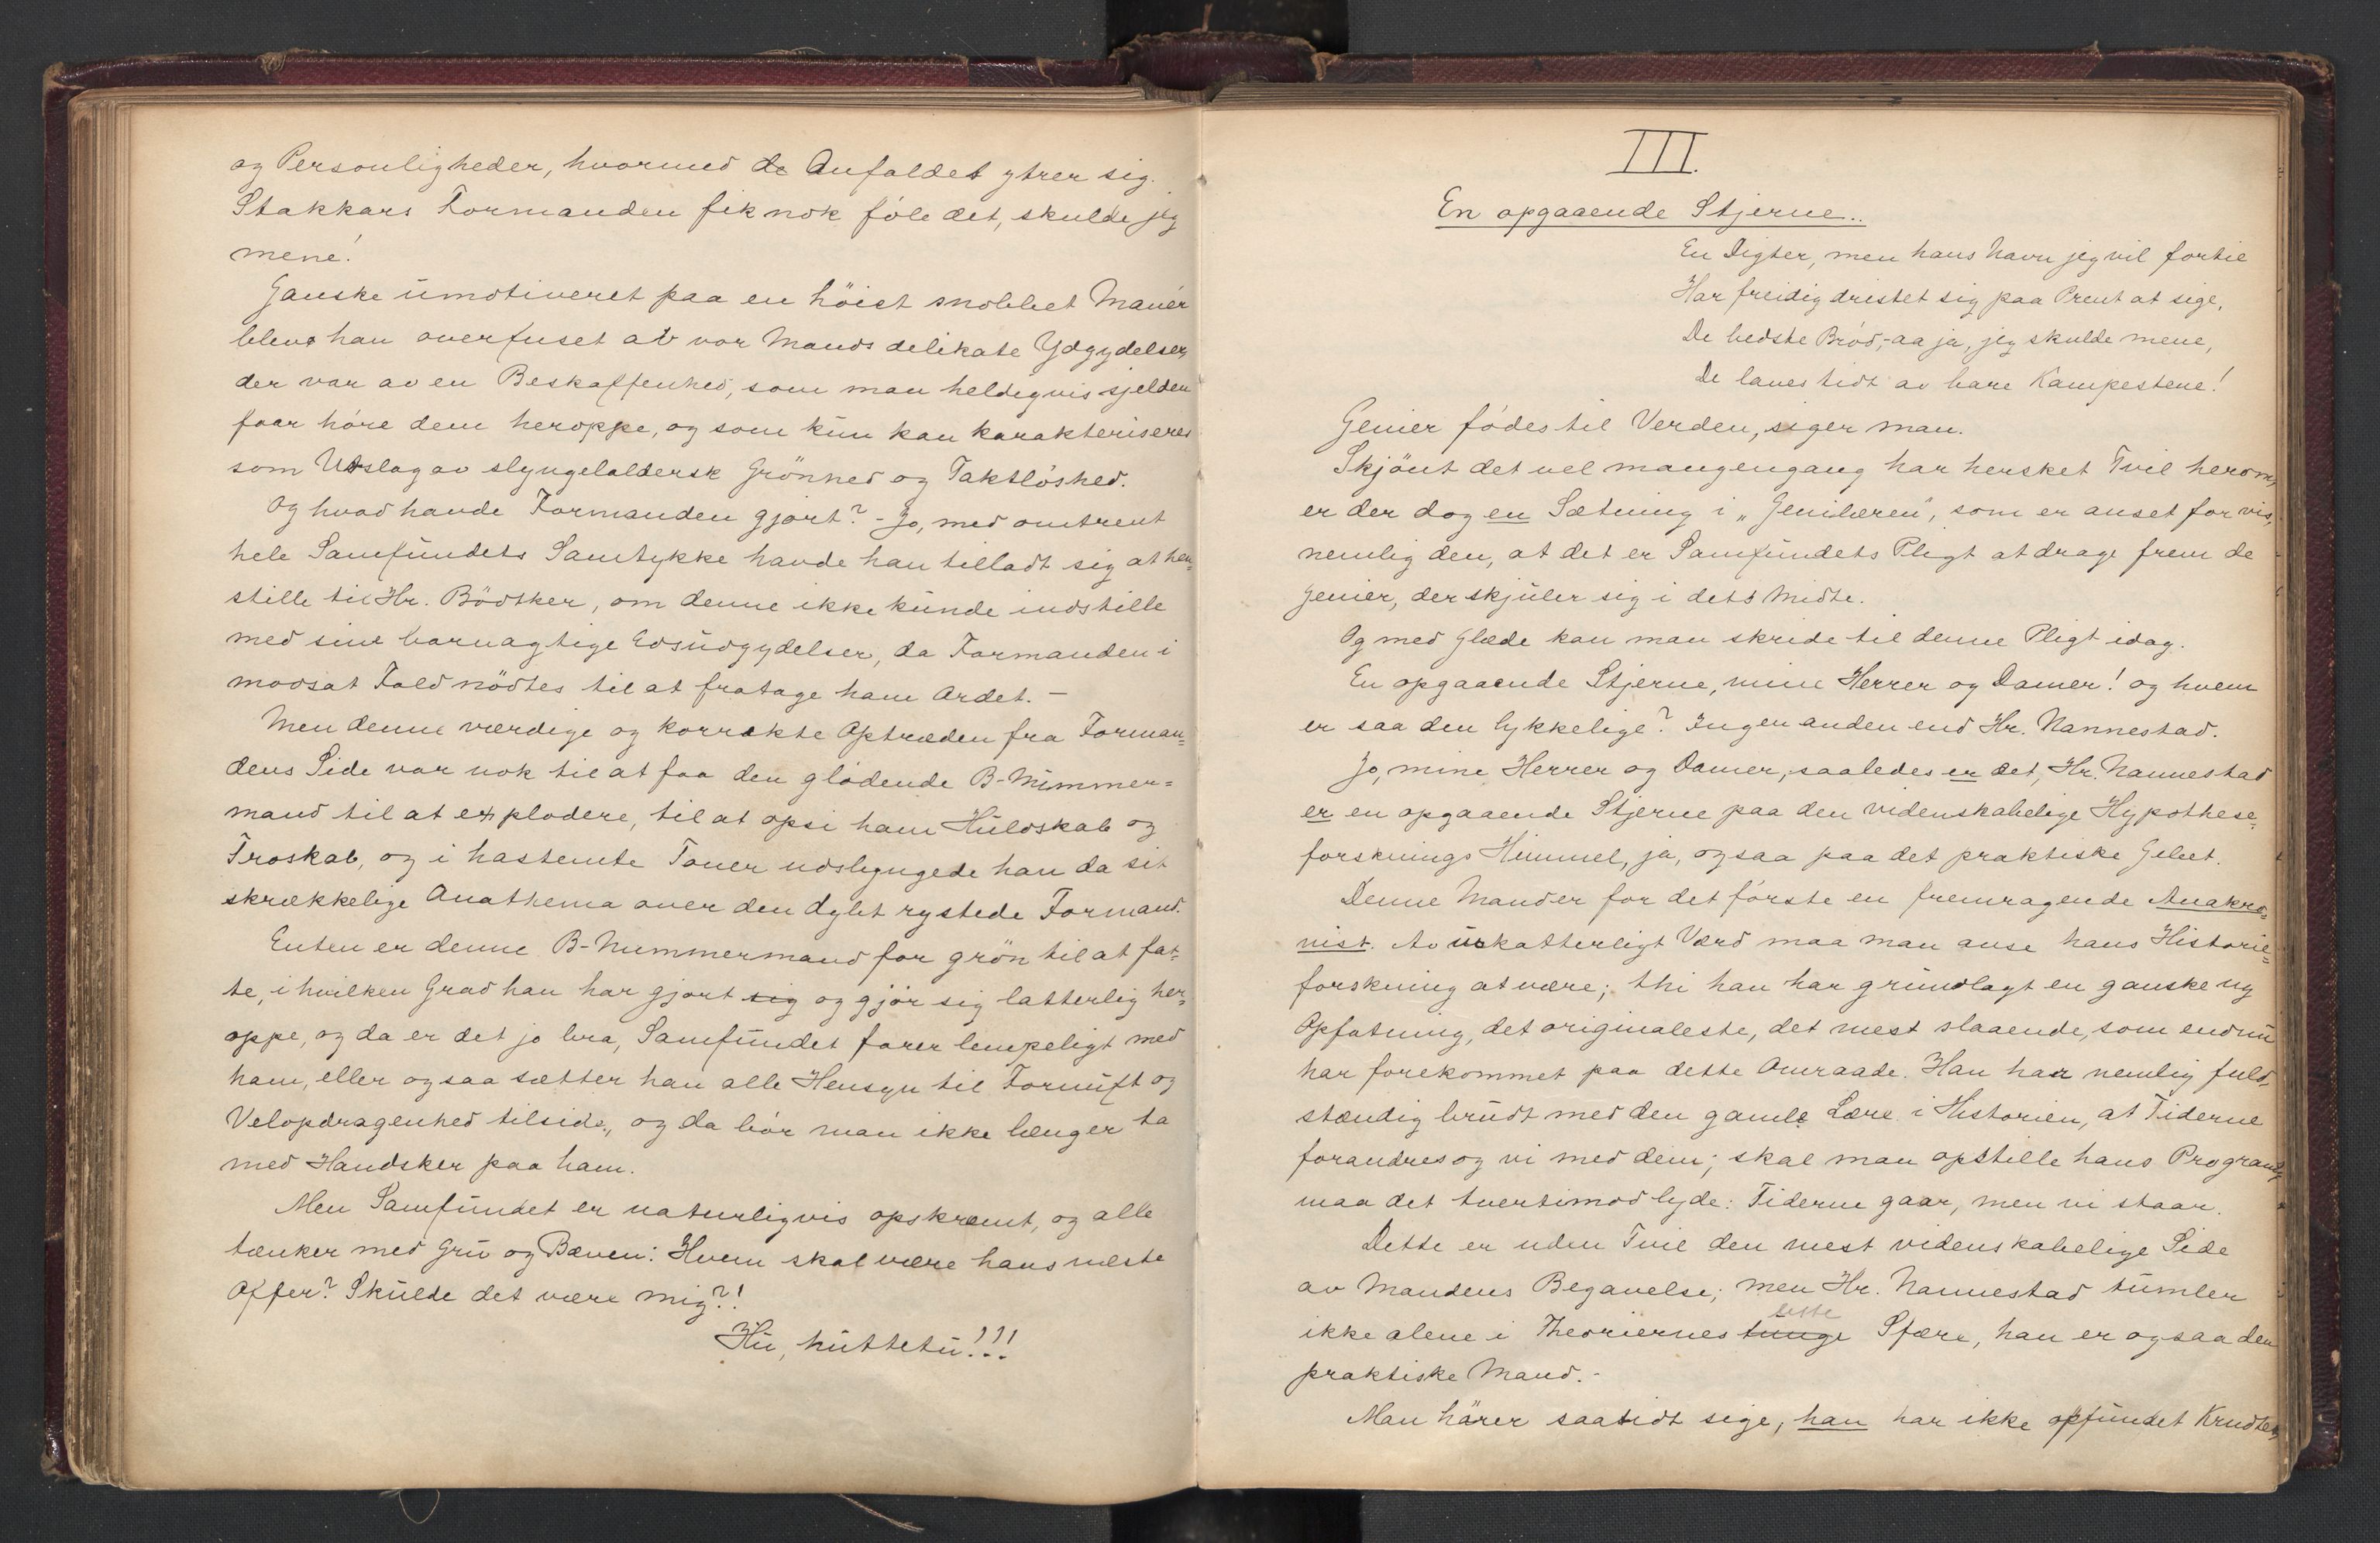 og Personligheder, hvormed de Anfaldet ytrer sig.
Stakkars Formanden fik nok føle det, skulde jeg
mene!
Ganske umotiveret paa en höist snobbet Manér
blev han overfuset av vor Mands delikate Ydgydelser,
der var av en Beskaffenhed, som man heldigvis sjelden
faar høre dem heroppe, og som kun kan karakteriseres
som Utslag av slyngelaldersk Grönhed og Taktløshed.
Og hvad havde Formanden gjort? - Jo, med omtrent
hele Samfundets Samtykke havde han tilladt sig at hen=
stille til Hr. Bödtker, om denne ikke kunde indstille
med sine barnagtige Edsudgydelser, da Formanden i
modsat Fald nödtes til at fratage ham Ordet. –
Men denne værdige og korrekte Optræden fra Forman=
dens Side var nok til at faa den glödende B-Nummer=
mand til at explodere, til at opsi ham Huldskab og
Troskab, og i hastemte Toner udslyngede han da sit
skrækkelige Anathema over den dybt rystede Formand.
Enten er denne B-Nummermand for grön til at fat=
te, i hvilken Grad han har gjort sig og gjör sig latterlig her=
oppe, og da er det jo bra, Samfundet farer lempeligt med
ham, eller ogsaa sætter han alle Hensyn til Fornuft og
Velopdragenhed tilside, og da bör man ikke længer ta
med Handsker paa ham.
Men Samfundet er naturligvis opskræmt, og alle
tænker med Gru og Bæven: Hvem skal være hans næste
Offer? Skulde det være mig?!
Hu, huttetu!!!
III.
En opgaaende Stjerne..
En Digter, men hans Navn jeg vil fortie
Har freidig dristet sig paa Prent at sige,
De bedste Bröd, - aa ja, jeg skulde mene,
De laves tidt av bare Kampestene!
Genier födes til Verden, siger man.
Skjönt det vel mangengang har hersket Tvil herom,
er der dog en Sætning i „Genilæren", som er anset for vis,
nemlig den, at det er Samfundets Pligt at drage frem de
Genier, der skjuler sig i dets Midte.
Og med Glæde kan man skride til denne Pligt idag.
En opgaaende Stjerne, mine Herrer og Damer! og hvem
er saa den lykkelige? Ingen anden end Hr. Nannestad.
Jo, mine Herrer og Damer, saaledes er det, Hr. Nannestad
er en opgaaende Stjerne paa den videnskabelige Hypothese=
forsknings Himmel, ja, ogsaa paa det praktiske Gebet.
Denne Mand er for det förste en fremragende Anakro=
nist. Av uskatterligt Værd maa man anse hans Historie=
forskning at være; thi han har grundlagt en ganske ny
Opfatning, det originaleste, det mest slaaende, som endnu
har forekommet paa dette Omraade. Han har nemlig fuld=
stændig brudt med den gamle Lære i Historien, at Tiderne
forandres og vi med dem; skal man opstille hans Program,
maa det tvertimod lyde: Tiderne gaar, men vi staar.
Dette er uden Tvil den mest videnskabelige Side
av Mandens Begavelse; men Hr. Nannestad tumler
lette
ikke alene i Theoriernes tunge Sfære, han er ogsaa den
praktiske Mand. -
Man hører saa tidt sige, han har ikke opfundet Krudtet,